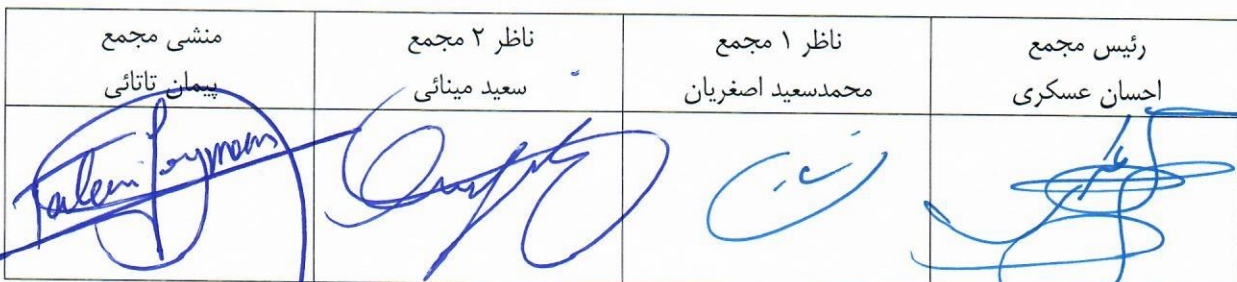 رئیس مجمع
احسان عسکری
ناظر ۱ مجمع
محمدسعید اصغریان
ناظر ۲ مجمع
سعید مینائی
منشی مجمع
پیمان تاتائی